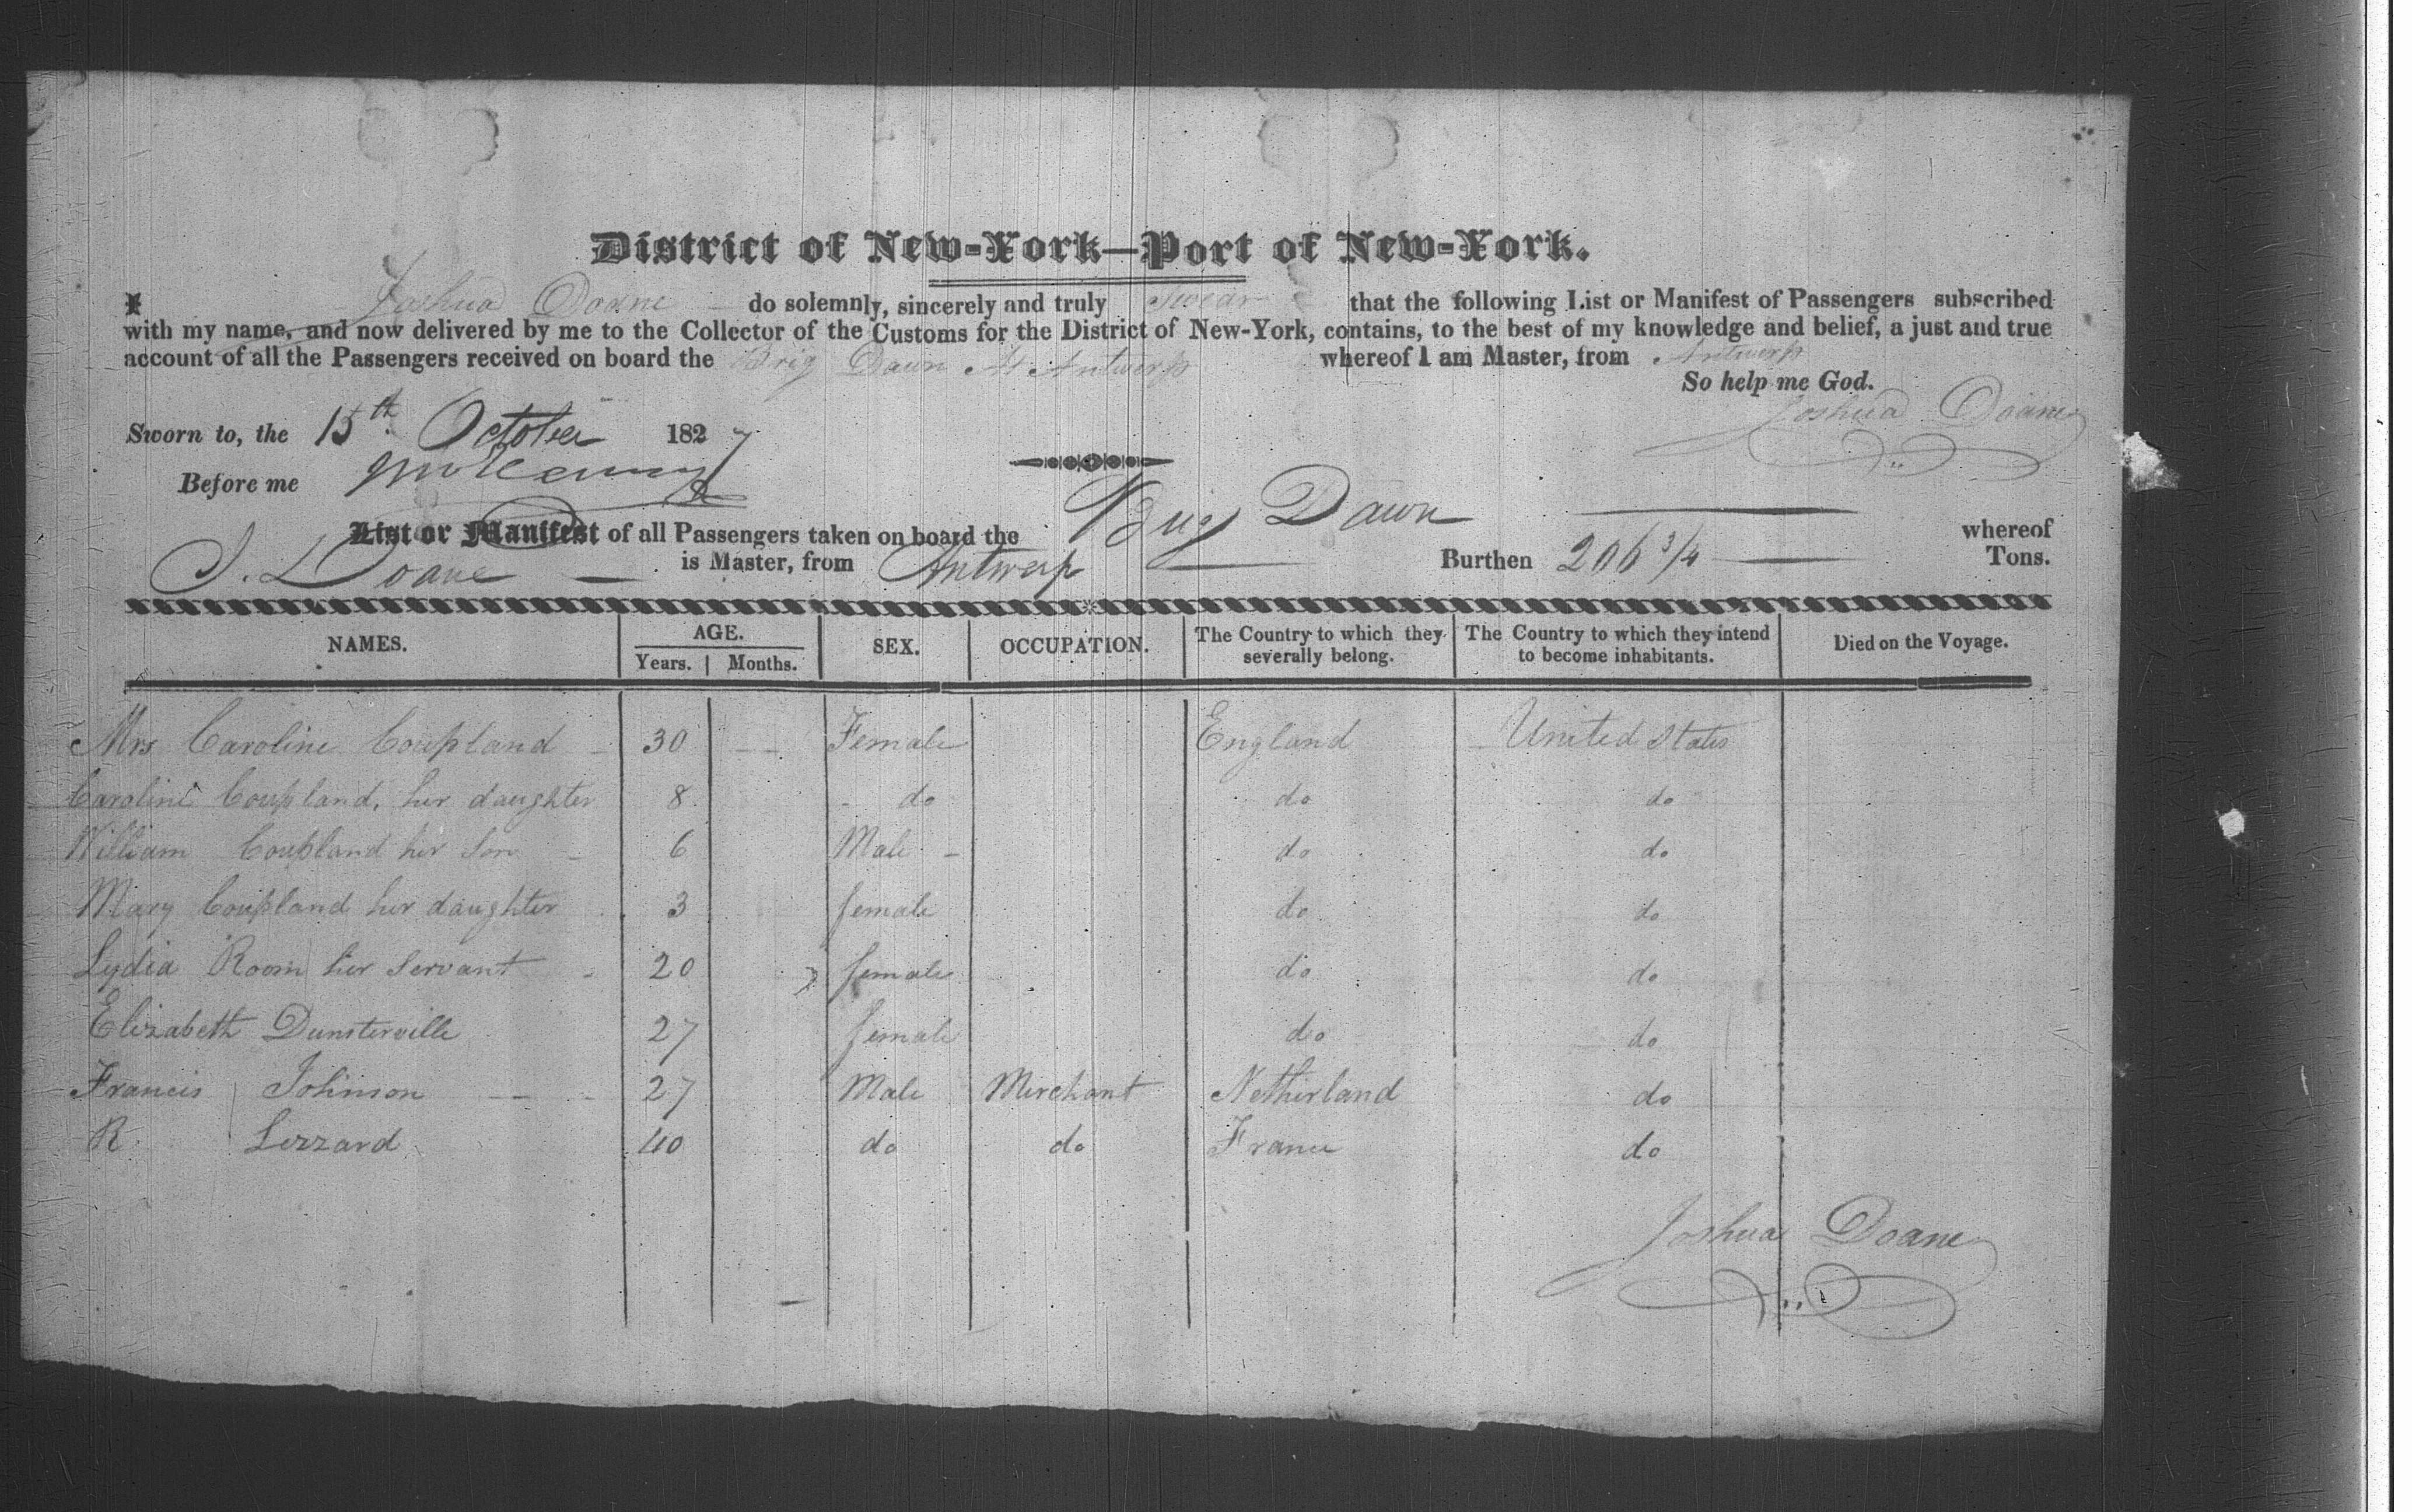 District of New-York—Port of New-York.
I Joshua Doane do solemnly, sincerely and truly Swear that the following List or Manifest of Passengers subscribed
with my name, and now delivered by me to the Collector of the Customs for the District of New-York, contains, to the best of my knowledge and belief, a just and true
account of all the Passengers received on board the Brig Dawn At Antwerp whereof I am Master, from Antwerp
So help me God.
Joshua Doane
Sworn to, the 15th October 1827
Before me
List or Manifest of all Passengers taken on board the Brig Dawn whereof
J. Doane is Master, from Antwerp Burthen 206 3/4 Tons.
NAMES. AGE. SEX. OCCUPATION. The Country to which they severally belong. The Country to which they intend to become inhabitants. Died on the Voyage.
Years. Months.
Mrs Caroline Coupland 30 Female England United States
Caroline Coupland, her daughter 8 do do do
William Coupland her Son 6 Male do do
Mary Coupland her daughter 3 female do do
Lydia Room her Servant 20 female do do
Elizabeth Dunsterville 27 female do do
Francis Johinson 27 Male Merchant Netherland do
R. Lezzard 40 do do France do
Joshua Doane